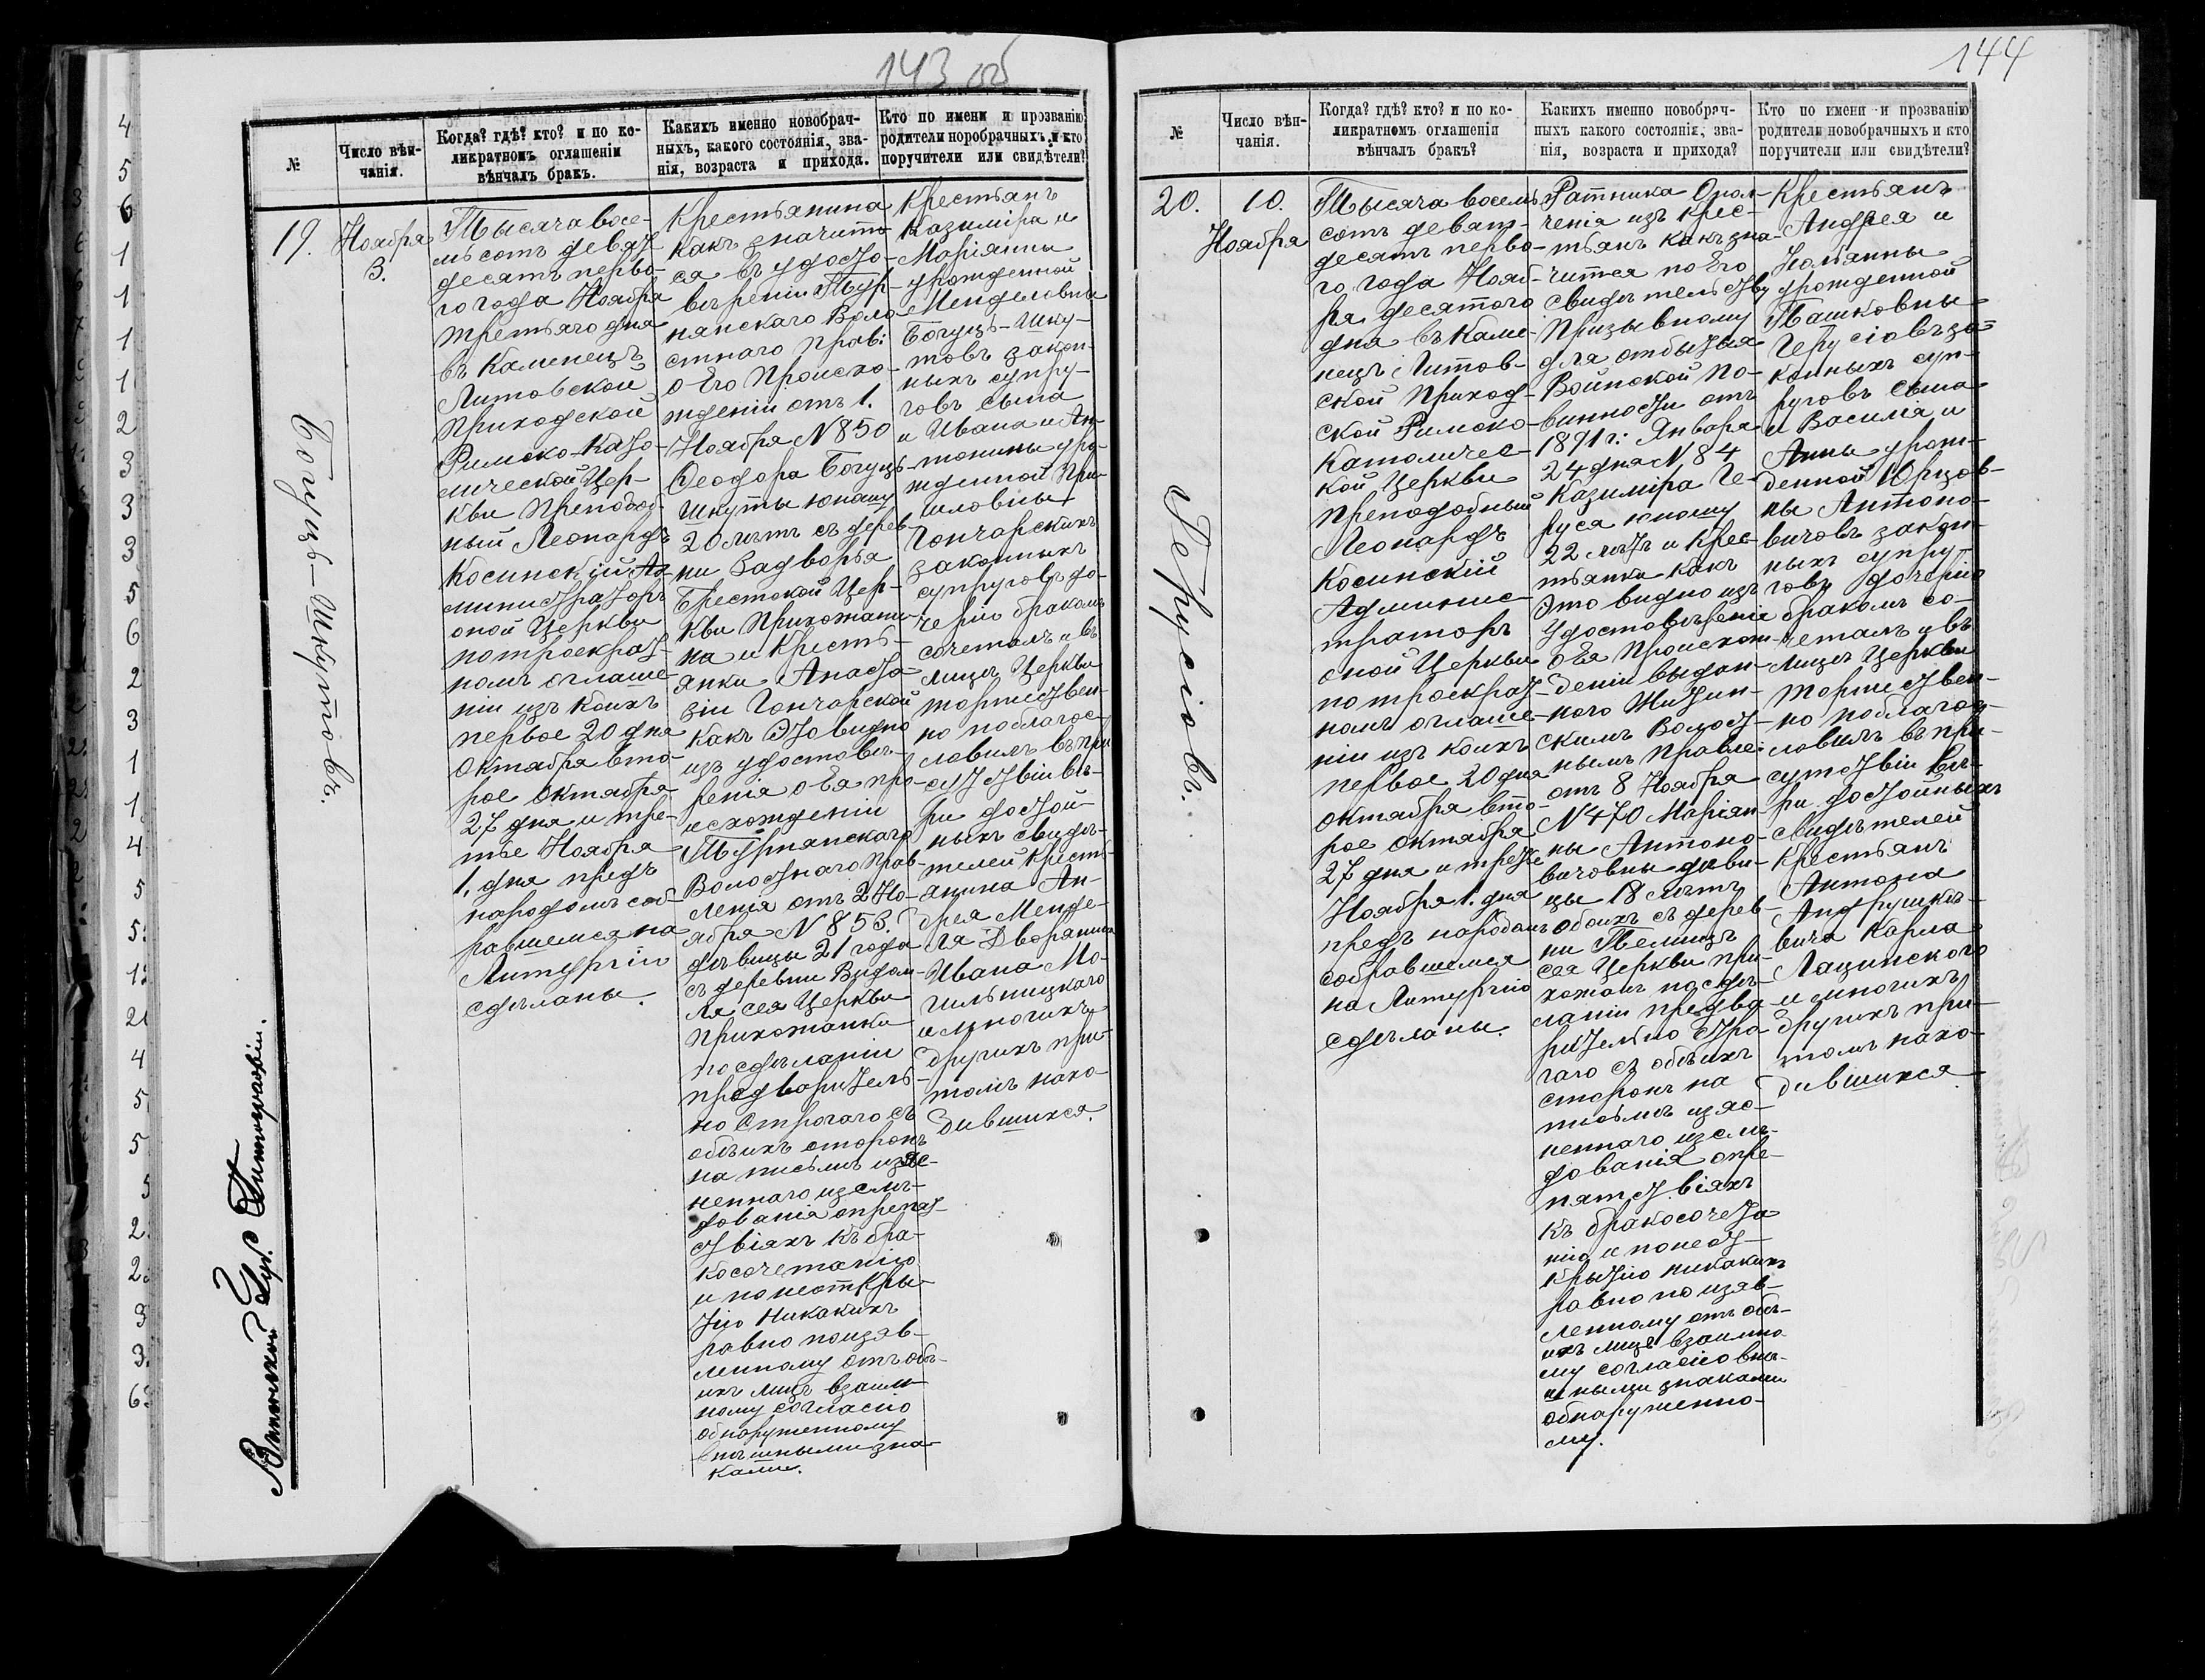 143 об
№
Число вѣн-
чанія.
Когда? гдѣ? кто? и по ко-
ликратномъ оглашеніи
вѣнчалъ бракъ.
Какихъ именно новобрач-
ныхъ, какого состоянія, зва-
нія, возраста и прихода.
Кто по имени и прозванію
родители новобрачныхъ и кто
поручители или свидѣтели?
19.
Ноября
3.
Богуцъ-Шкутовъ.
Тысяча восе-
мьсотъ девят
десятъ перво-
го года Ноября
третьяго дня
въ Каменецъ
Литовской
Приходской
Римско-Като-
лической Цер-
кви Преподоб-
ный Леонардъ
Косинскій Ад-
министраторъ
оной Церкви
по троекрат-
номъ оглаше-
ніи изъ коихъ
первое 20 дня
Октября вто-
рое Октября
27 дня и тре-
тье Ноября
1. дня предъ
народомъ соб-
равшемся на
Литургію
сдѣланы.
Крестьянина
какъ значит-
ся въ удосто-
вѣреніи Тур-
нянскаго Воло-
стнаго прав:
о Его Происхо-
жденіи отъ 1.
Ноября N 850
Ѳеодора Богуцъ-
Шкуты юношу
20 лѣтъ съ дерев-
ни Задворья
Брестской Цер-
кви Прихожани-
на и Кресть-
янки Анаста-
зіи Гончарской
какъ Это видно
изъ удостовѣ-
ренія о Ея про-
исхожденіи
Турнянскаго
Волостнаго прав-
ленія отъ 2 Но-
ября N 853.
дѣвицы 21 года
съ деревни Видом-
ля сея Церкви
Прихожанки
по сдѣланіи
предваритель-
но Строгаго съ
обѣихъ сторонъ
на письмѣ изъяс-
неннаго изслѣ-
дованія о препят-
ствіяхъ къ бра-
косочетанію
и по неоткры-
тію Никакихъ
равно по изъяв-
ленному отъ обѣ-
ихъ лицъ взаим-
ному согласію
обнаруженному
внѣшными зна-
ками.
Крестьянъ
Казиміра и
Маріянны
урожденной
Менделовны
Богуцъ-Шку-
товъ закон-
ныхъ супру-
говъ сына
и Ивана и Ан-
тонины уро-
жденной При-
шловны
Гончарскихъ
законныхъ
супруговъ до-
черію бракомъ
сочеталъ и въ
лицѣ Церкви
торжествен-
но поблагос-
ловилъ въ при
сутствіи вѣ-
ры достой-
ныхъ свидѣ-
телей Кресть-
янина Ан-
дрея Менде-
ля Дворянина
Ивана Мо-
гильницкаго
и многихъ
другихъ при
томъ нахо-
дившихся.
144
№
Число вѣн-
чанія.
Когда? гдѣ? кто? и по ко-
ликратномъ оглашенія
вѣнчалъ бракъ?
Какихъ именно новобрач-
ныхъ какого состоянія, зва-
нія, возраста и прихода?
Кто по имени и прозванію
родители новобрачныхъ и кто
поручители или свидѣтели?
20.
10.
Ноября
Герусіовъ.
Тысяча восемь
сотъ девят-
десятъ перво-
го года Нояб-
ря десятого
дня въ Каме-
нецъ Литов-
ской Приход-
ской Римско-
Католичес-
кой Церкви
Преподобный
Леонардъ
Косинскій
Админис-
траторъ
оной Церкви
по троекрат-
номъ оглаше-
ніи изъ коихъ
первое 20 дня
Октября вто-
рое Октября
27 дня и третье
Ноября 1. дня
предъ народомъ
собравшемся
на Литургію
сдѣланы.
Ратника Опол-
ченія изъ крес-
тьянъ какъ зна-
чится по Его
свидѣтельству
Призывному
для отбытія
Воинской По-
винности отъ
1891 г: Января
24 дня N 84
Казиміра Ге-
руся юношу
22 лѣтъ и крес-
тьянки какъ
Это видно изъ
удостовѣренія
о Ея Происхож-
деніи выдан-
ного
скимъ Волост-
нымъ Правле:
отъ 8 Ноября
N 470 Маріян-
ны Антоно-
вичовны дѣви-
цы 18 лѣтъ
обоихъ съ дерев-
ни
сея Церкви при-
хожанъ по сдѣ-
ланіи предва-
рительно Стро-
гаго съ обѣихъ
сторонъ на
письмѣ изъяс-
неннаго изслѣ-
дованія о пре-
пятствіяхъ
къ бракосочета-
нію и по неот-
крытію никакихъ
равно по изъяв-
ленному отъ обѣ-
ихъ лицъ взаимно-
му согласію внѣ-
шными знаками
обнаруженно-
му.
Крестьянъ
Андрея и
Юліянны
урожденной
Пашковны
Герусіовъ за-
конныхъ суп-
руговъ сына
и Василія и
Анны урож-
денной Юрцов-
ны Антоно-
вичовъ закон-
ныхъ супру-
говъ дочерію
бракомъ со-
четалъ и въ
Лицѣ Церкви
торжествен-
но поблагос-
ловилъ въ при-
сутствіи вѣ-
ры достойныхъ
свидѣтелей
Крестьянъ
Антона
Андрушке-
вича Карла
Лащинского
и многихъ
другихъ при-
томъ нахо-
дившихся